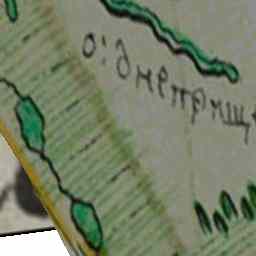 о: днеприще